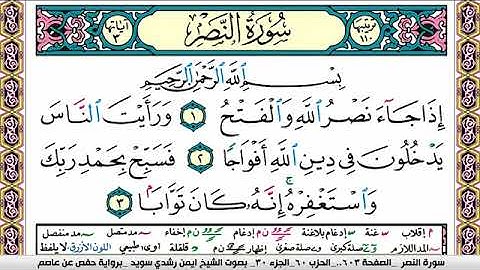 آياتها ٣ سُورَةُ النَّصْرِ ترتيبها ١١٠
بِسْمِ اللَّهِ الرَّحْمَٰنِ الرَّحِيمِ
إِذَا جَآءَ نَصْرُ اللَّهِ وَالْفَتْحُ ١ وَرَأَيْتَ النَّاسَ
يَدْخُلُونَ فِى دِينِ اللَّهِ أَفْوَاجًا ٢ فَسَبِّحْ بِحَمْدِ رَبِّكَ
وَاسْتَغْفِرْهُ ۚ إِنَّهُۥ كَانَ تَوَّابًۢا ٣
م إقلاب غنة إدغام بلاغنة إدغام إخفاء مد متصل مد منفصل
المد اللازم صلة كبرى صلة صغرى إظهار قلقلة طبيعي اللون الأزرق لا يلفظ
سورة النصر _الصفحة 603.._الحزب ٦٠_الجزء ٣٠_ بصوت الشيخ ايمن رشدي سويد _برواية حفص عن عاصم